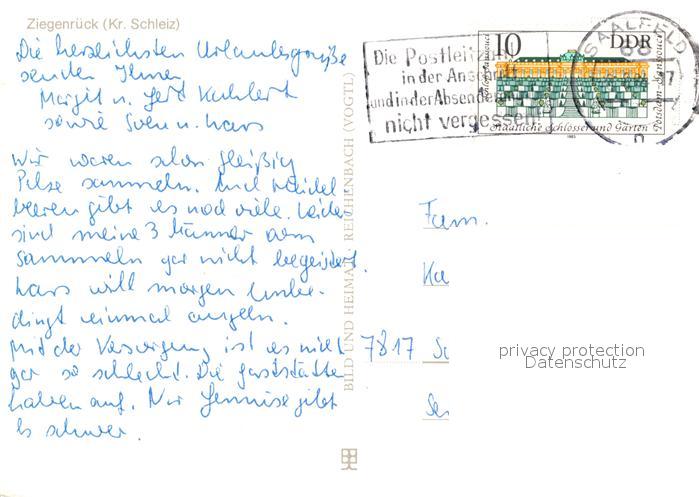 Ziegenrück (Kr. Schleiz)
Die herzlichsten Urlaubsgrüße
senden Ihnen
Margit u. Gerd
sowie Sven u. Lars
Wir waren schon fleißig
Pilze sammeln. Auch Heidel
beeren gibt es noch viele. Leider
sind meine 3 Männer vom
Sammeln gar nicht begeistert.
Lars will morgen unbe-
dingt einmal angeln.
Mit der Versorgung ist es nicht
gar so schlecht. Die Gaststätten
haben auf. Nur Gemüse gibt
es schwer.
BILD UND HEIMAT REICHENBACH (VOGTL)
Die Postleitz
in der Anschrift
und in der Absender
nicht vergessen!
10
DDR
Staatliche Schlösser und Gärten
Potsdam-Sanssouci
1983
SAALFELD
Fam.
Ka
7817 Sc
Se
privacy protection
Datenschutz